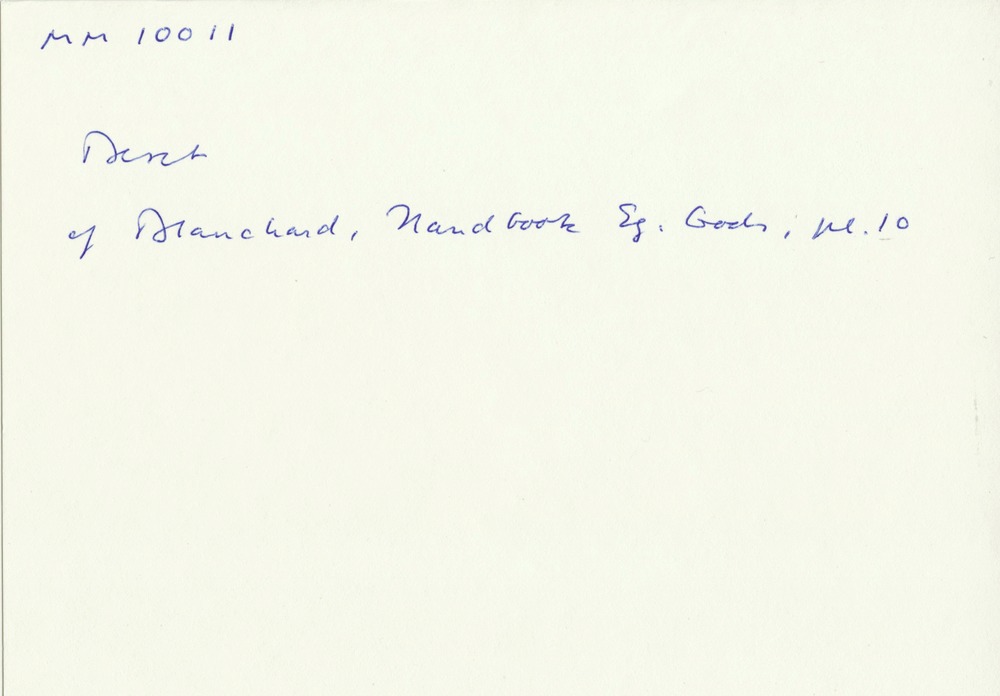 MM 10011
Beset
cf Blanchard, Handbook Eg. Gods, pl. 10